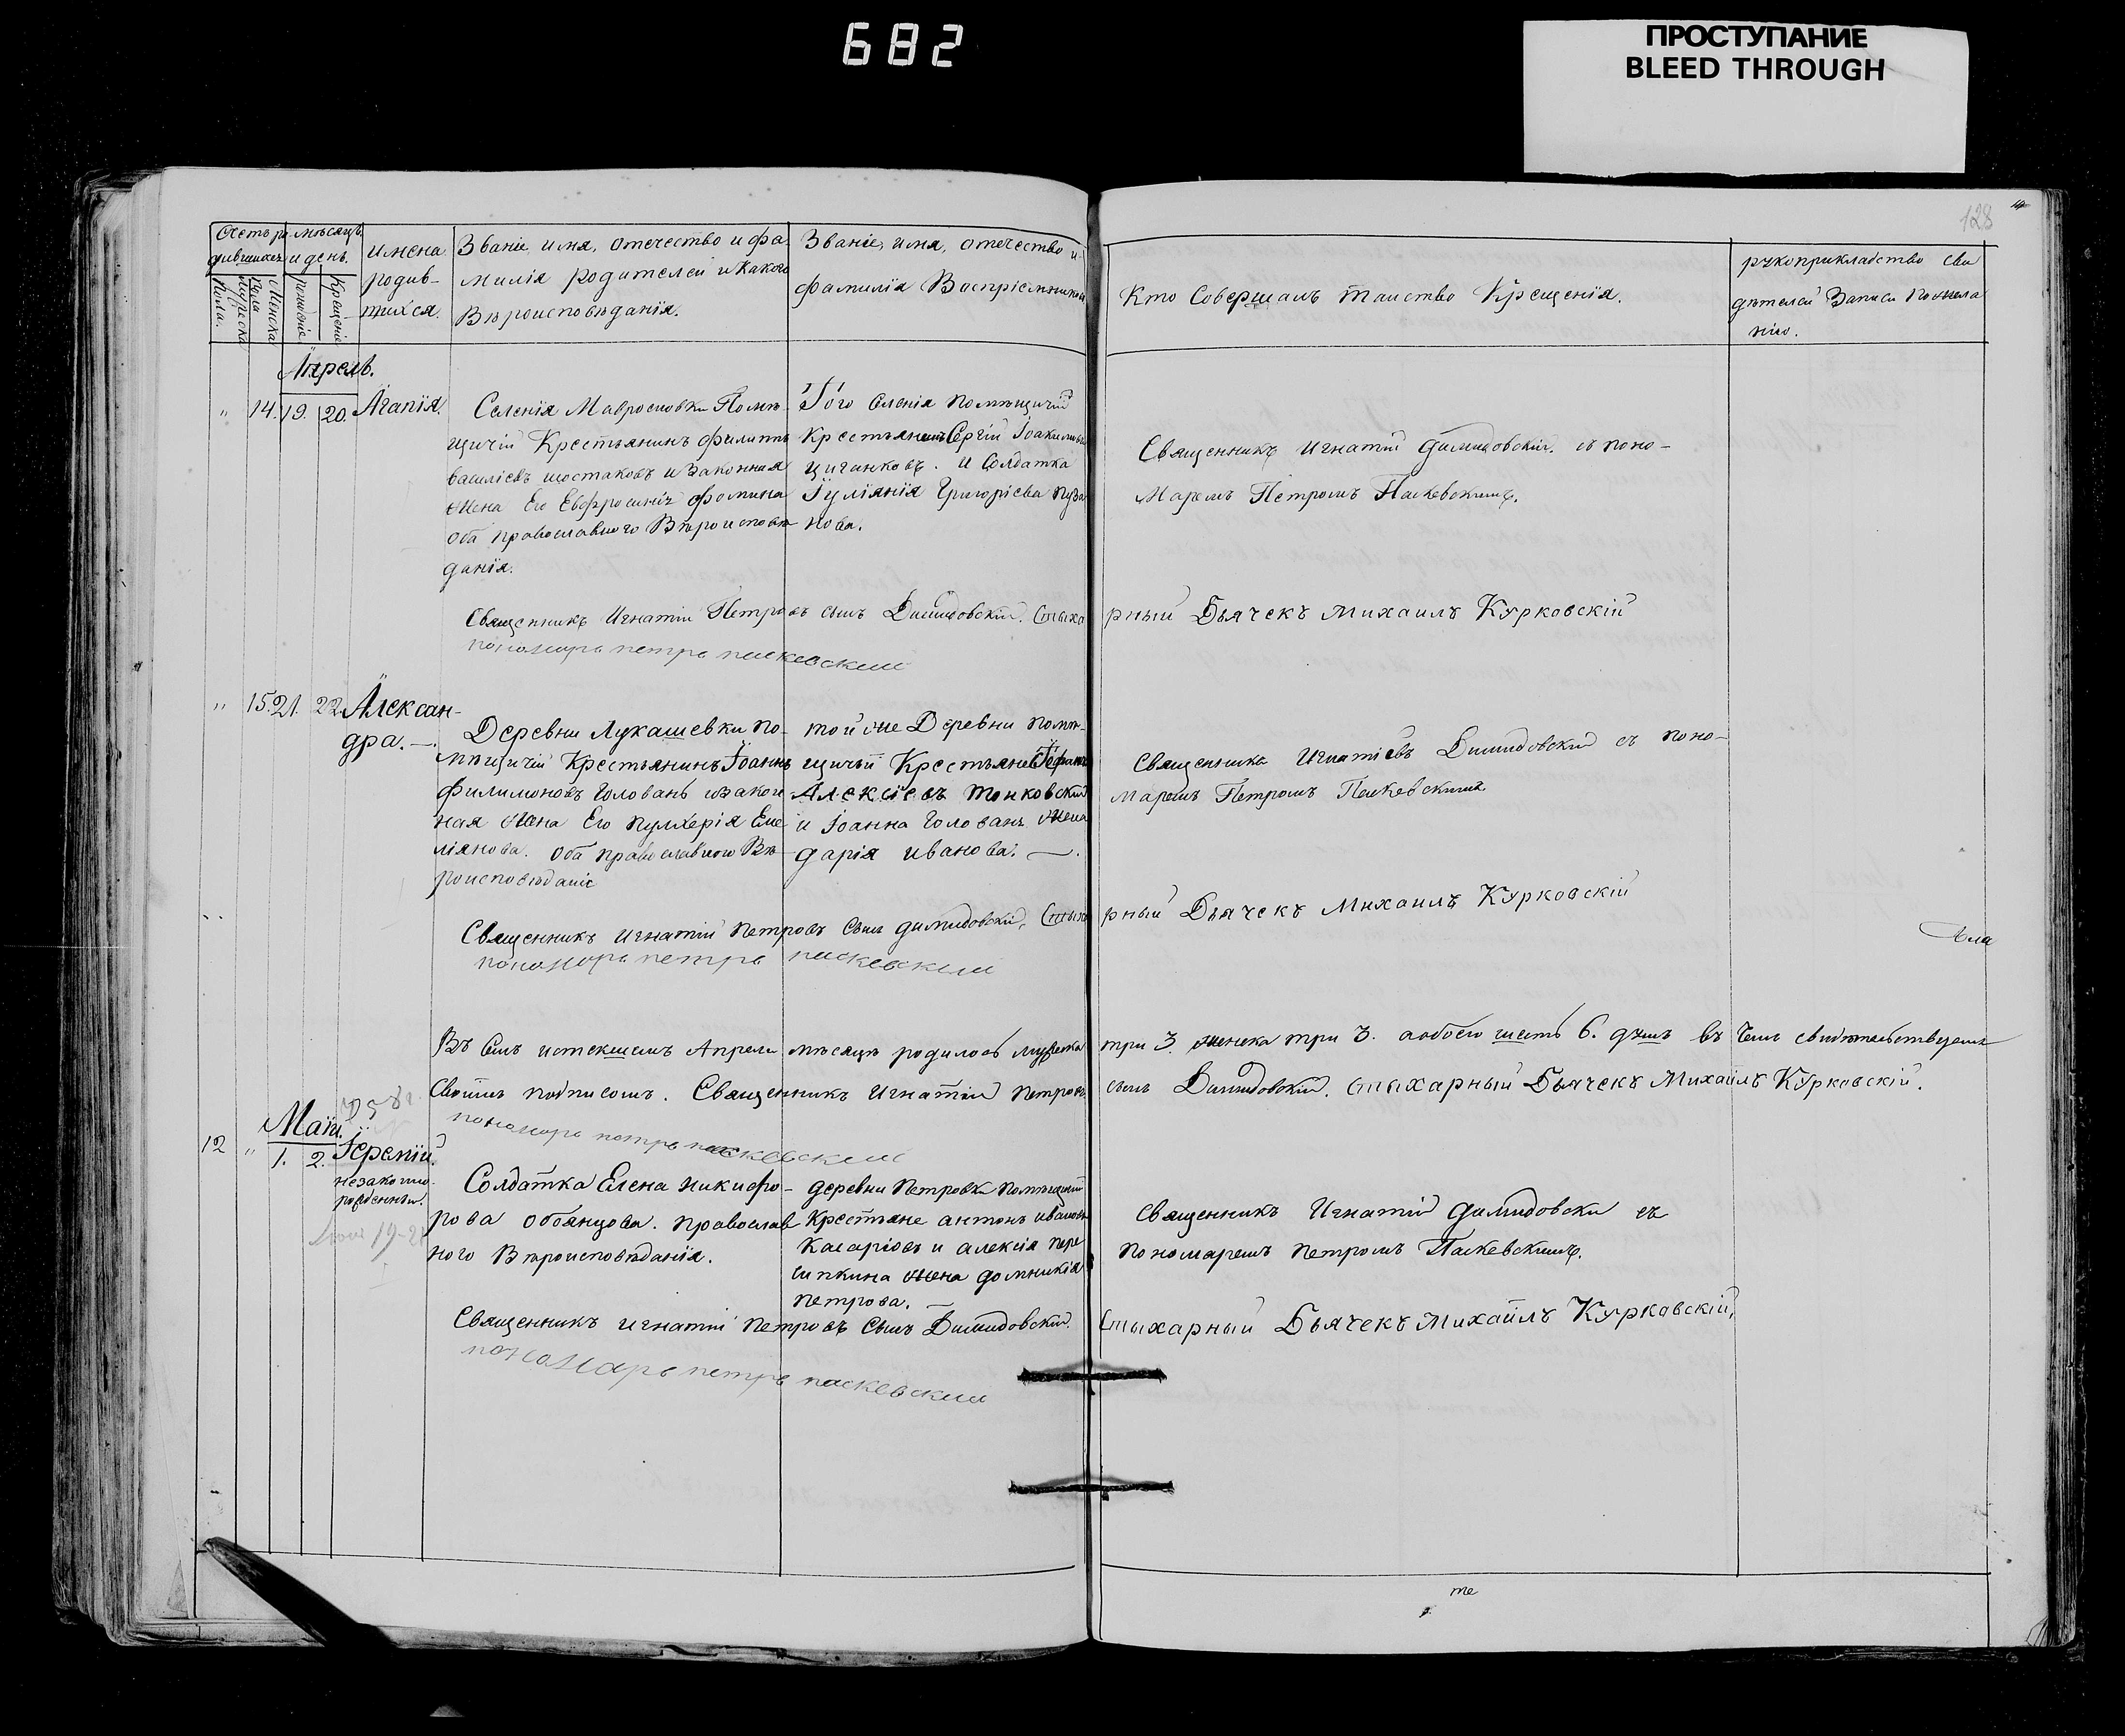 682
ПРОСТУПАНИЕ
BLEED THROUGH
128
мѣсяцъ
и день.
Мужеска
Пола.
Женска
рожденіе
Крещеніе
имена
родив-
шихся.
Званіе, имя, отечество и фа-
милія родителей и какого
Вѣроисповѣданія.
Званіе, имя, отечество и
фамилія Воспріемников
Кто Совершалъ таинство Крещенія.
рукоприкладство сви
дѣтелей Записи по жела
нію.
Апрель.
" 14. 19. 20. Агапія.
Селенія Мавросновки Помѣ-
щичій Крестьянинъ филиппъ
василіевъ шостаковъ и Законная
жена Его Евфросинія фомина
оба православного Вѣроисповѣ-
данія.
Того селенія помѣщичій
Крестьянинъ Сергій Іоакимовъ
циганковъ. и Солдатка
Іуліянія Григоріева пуза
нова.
Священникъ Игнатій Димидовскій. съ поно-
Маремъ Петромъ Паскевскимъ.
Священникъ Игнатій Петровъ сынъ Димидовскій. Стыха
рный Дьячекъ Михаилъ Курковскій
пономарь петръ паскевский
" 15. 21. 22. Алексан-
дра. —.
Деревни Лукашевки по-
мѣщичій Крестьянинъ Іоаннъ
Филимоновъ Головань и закон
ная жена Его Пулхерія Еме
ліянова. оба православного Вѣ-
роисповѣданіе
той же Деревни помѣ-
щичьи Крестьяне Стефанъ
Алексіевъ тонковский
и Іоанна Голованъ жена
дарія иванова. —.
Священника Игнатіевъ Димидовский съ поно-
маремъ Петромъ Паскевскимъ
Священникъ Игнатій Петровъ Сынъ димидовскій, Стыха
рный Дьячекъ Михаилъ Курковскій
пономарь петръ паскевский
Въ семъ истекшемъ Апреле мѣсяцѣ родилось мужеска
три 3. женска три 3. а обоего шесть 6. душъ въ чемъ свидѣтельствуемъ
Своимъ подписомъ. Священникъ Игнатій Петровъ
сынъ Димидовский. Стыхарный Дьячекъ Михаилъ Курковскій.
пономарь петръ паскевский
Маій.
12 " 1. 2. Іеремій.
незаконно-
рожденный.
Солдатка Елена никифо-
рова обоянцова. православ
ного Вѣроисповѣданія.
деревни Петровки помѣщичій
Крестьяне антонъ ивановъ
Касаріовъ и алексія пере
сипкина жена домникія
Петрова. —
Священникъ Игнатій димидовски съ
пономаремъ петромъ Паскевскимъ.
Священникъ игнатій Петровъ Сынъ Димидовскій.
Стыхарный Дьячекъ Михаилъ Курковскій,
пономарь петръ паскевский
те